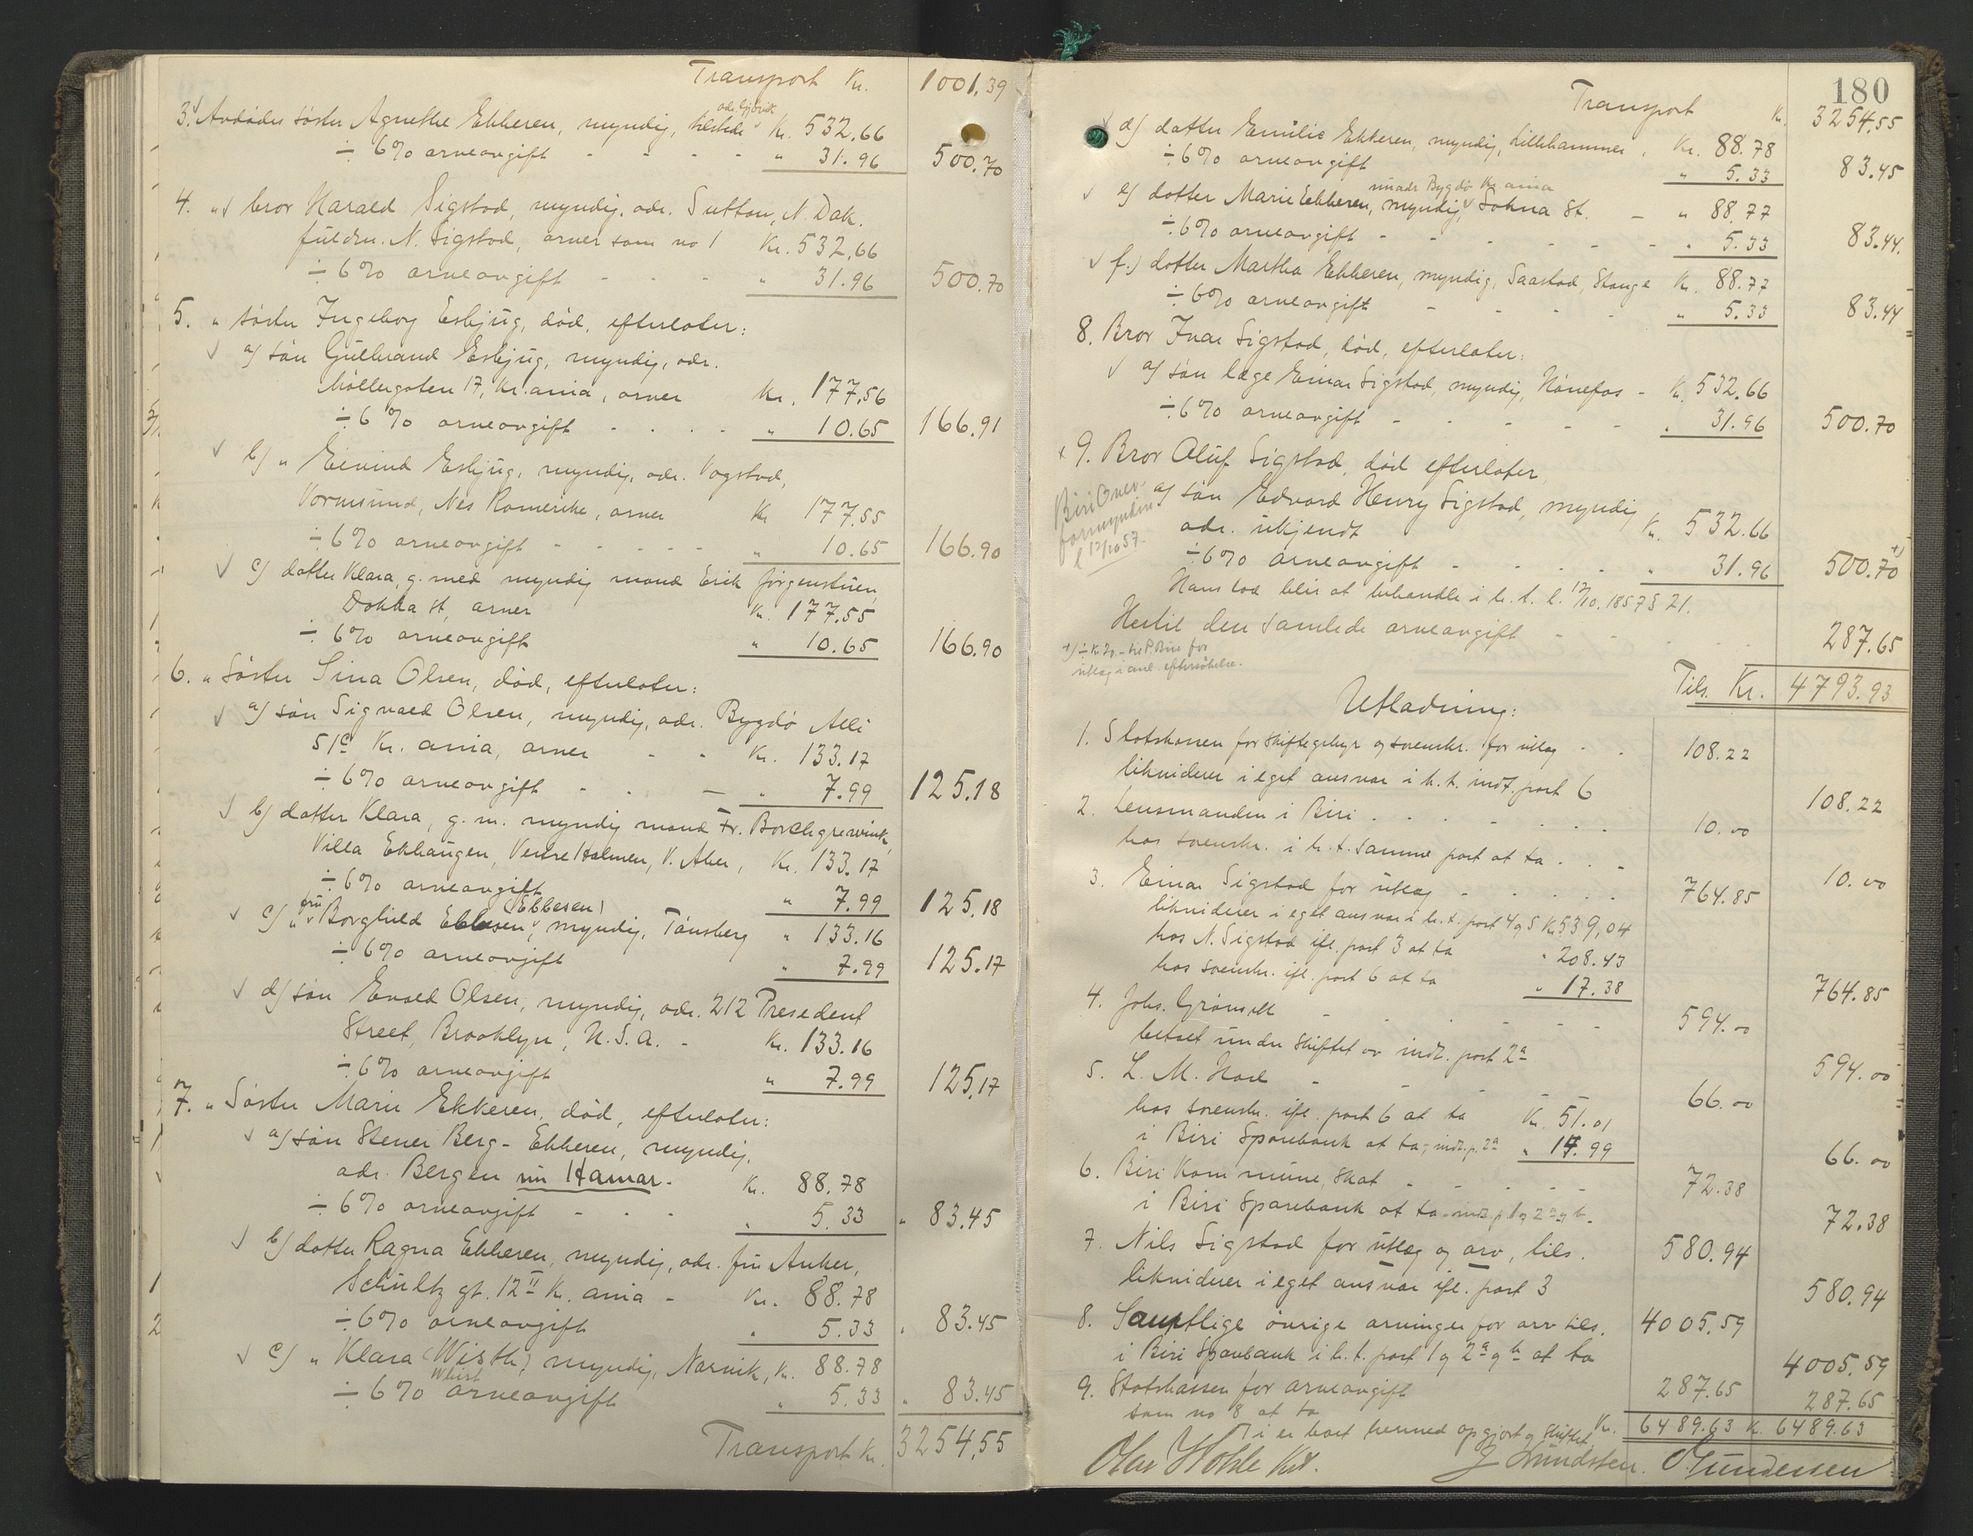 Transport Kr. 1001,39
3. Avdødes søster Agnethe Ekkeren, myndig, tilstede adr. Gjøvik Kr. 532.66
÷ 6% arveavgift - - - - " 31.96 500.70
4. " bror Harald Sigstad, myndig, adr. Sutton, N. Dak.
fuldm. N. Sigstad, arver som no 1 Kr. 532,66
÷ 6% arveavgift - - - " 31.96 500.70
5. " søster Ingeborg Esbjug, død, efterlater:
a) søn Gulbrand Esbjug, myndig, adr.
Møllergaten 17, Kr.ania, arver Kr. 177,56
÷ 6% arveavgift - - - - " 10.65 166.91
b) " Eivind Esbjug, myndig, adr. Vogstad,
Vormsund, Nes Romerike, arver Kr 177,55
÷ 6% arveavgift - - - - - " 10.65 166.90
c) datter Klara, g. med myndig mand Erik Jørgenstuen,
Dokka st, arver Kr. 177.55
÷ 6% arveavgift " 10.65 166.90
6. " Søster Sina Olsen, død, efterlater:
a) søn Sigvald Olsen, myndig, adr. Bygdø Alle
51c Kr. ania, arver - - Kr. 133.17
÷ 6% arveavgift - - - " 7.99 125.18
b) datter Klara, g. m. myndig mand Fr. Borchgrevink,
Villa Ekhaugen, Vestre Holmen, V. Aker, Kr. 133.17
÷ 6% arveavgift " 7.99 125.18
c) " fru Borghild Ebbesen (Ebbesen), myndig, Tønsberg " 133.16
÷ 6% arveavgift " 7.99 125.17
d) søn Evald Olsen, myndig, adr. 212 President
Street, Brooklyn, U.S.A. - Kr. 133.16
÷ 6% arveavgift " 7.99 125,17
7. " Søster Marie Ekkeren, død, efterlater:
a) søn Stener Berg-Ekkeren, myndig,
adr. Bergen nu Hamar - Kr. 88.78
÷ 6% arveavgift - - - " 5.33 " 83.45
b) datter Ragna Ekkeren, myndig, adr. fru Anker,
Schultz gt. 12 II Kr. ania - Kr. 88.78
÷ 6% arveavgift " 5.33 " 83.45
c) " Klara (Wisth), myndig, Narvik, Kr. 88.78
÷ 6% arveavgift " 5.33 " 83.45
Transport Kr. 3254,55
180
Transport Kr. 3254,55
d) datter Emilie Ekkeren, myndig, Lillehammer, Kr. 88.78
÷ 6% arveavgift " 5.33 83.45
nu adr Bygdø Kr. ania
e) datter Marie Ekkeren, myndig, Sokna St. - " 88,77
÷ 6% arveavgift - - - - - - " 5.33 83.44.
f.) datter Martha Ekkeren, myndig, Saastad, Stange Kr. 88.77
÷ 6% arveavgift - - - - " 5.33 83.44
8. Bror Ivar Sigstad, død, efterlater:
a) søn læge Einar Sigstad, myndig, Hønefos - Kr. 532.66
÷ 6% arveavgift - - - - - " 31.96 500.70
x 9. Bror Oluf Sigstad, død efterlater,
a) søn Edvard Henry Sigstad, myndig
adr. ukjendt Kr. 532.66
÷ 6% arveavgift - - - - " 31.96 500.70 x)
Biri Over-
formynderi
l 12/10 57.
Hans lod blir at behandle i h. t. l. 12/10. 1857 § 21.
Hertil den samlede arveavgift - - - - 287.65
Tils. Kr. 4793.93
Utlodning:
1. Statskassen for skiftegebyr og sorenskr. for utlæg - - 108.22
likviderer i eget ansvar i h. t. indt. post 6 108.22
2. Lensmanden i Biri - - - - - - 10.00
hos sorenskr. i h. t. samme post at ta - - - 10.00
3. Einar Sigstad for utlæg - - - - - 764.85
likviderer i eget ansvar i h. t. post 4 og 5 Kr. 539,04
hos N. Sigstad ifl. post 3 at ta " 208.43
hos sorenskr. ifl. post 6 at ta " 17.38 764.85
4. Johs. Grønvelt - - - - - - 594.00
betalt under skiftet av indt. post 2a 594.00
5. L. M. Hoel - - - - 66.00
hos sorenskr. ifl. post 6 at ta Kr. 51.01
i Biri Sparebank at ta, indt. p. 2a " 14.99 66.00
6. Biri Kommune, skat - - - - - 72.38
i Biri Sparebank at ta - indt. p. 1 og 2a og b - 72.38
7. Nils Sigstad for utlæg og arv, tils. 580.94
likviderer i eget ansvar ifl. post 3 580.94
8. Samtlige øvrige arvinger for arv tils. 4005,59
i Biri Sparebank i h. t. post 1 og 2a og b at ta 4005.59
9. Statskassen for arveavgift 287.65
som no 8 at ta 287.65
Kr. 6489.63 Kr. 6489.63
boet hermed opgjort og skiftet
J Smundsten. O. Gundersen